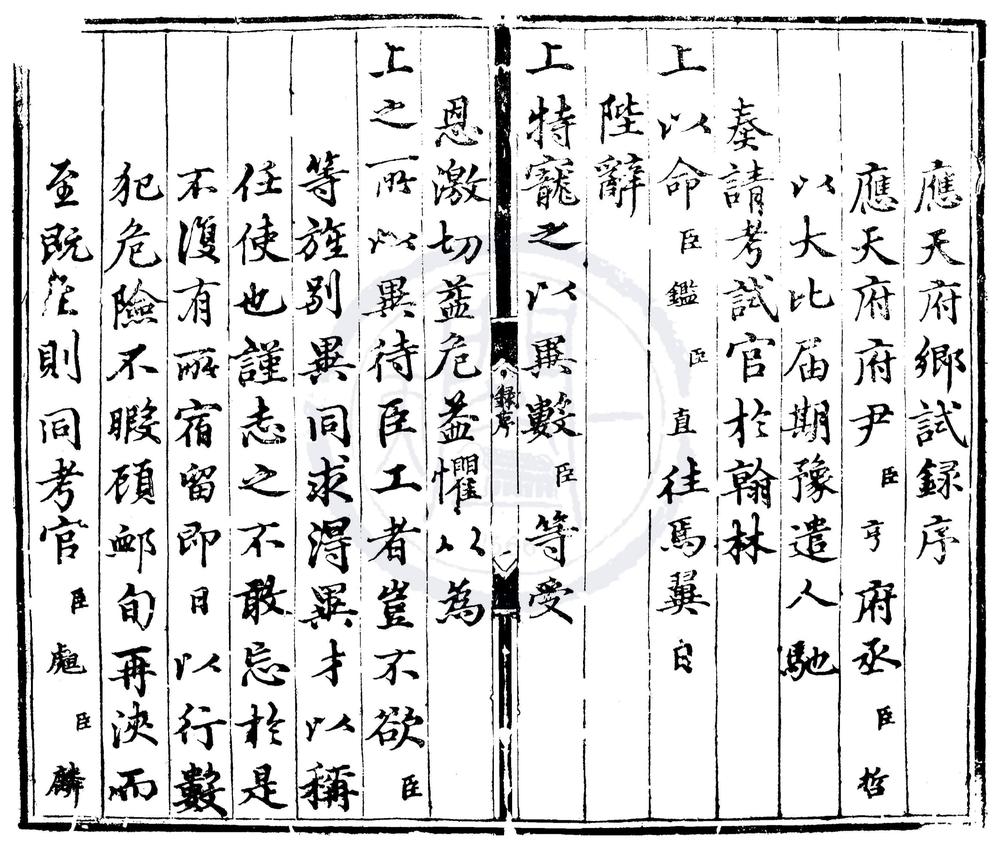 應天府鄉試録序
應天府府尹臣亨府丞臣哲
以大比届期豫遣人馳
奏請考試官於翰林
上以命臣鑑臣直往焉翼日
陛辭
上特寵之以異數臣等受
録序
一
恩激切益危益懼以為
上之所以異待臣工者豈不欲臣
等旌别異同求得異才以稱
任使也謹志之不敢忘於是
不復有所宿留即日以行數
犯危險不暇顧䘏旬再浹而
至既至則同考官臣彪臣麟